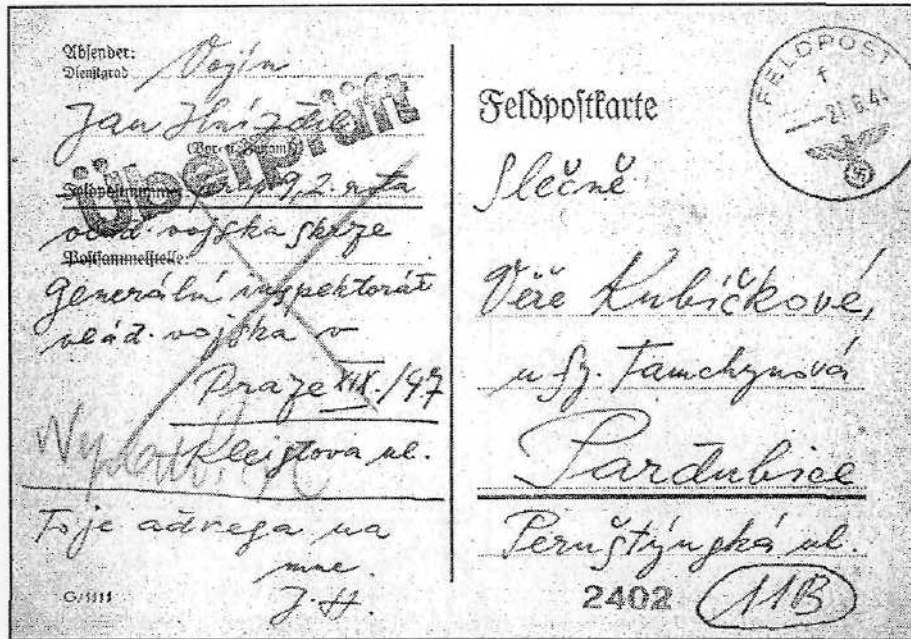 Absender: Vojín
Dienstgrad
Jan
(Vor- u. Zuname)
Überprüft
Feldpostnummer: prap. 9, 2. rota
vlád. vojska skrze
Postsammelstelle:
Generální inspektorát
vlád. vojska v
Praze XIX./47
Kleistova ul.
To je adresa na
mne.
J. H.
G/1111
FELDPOST
f
Feldpostkarte
Slečně
Věře Kubíčkové,
u fy. Tamchynová
Pardubice
Pernštýnská ul.
2402
11B